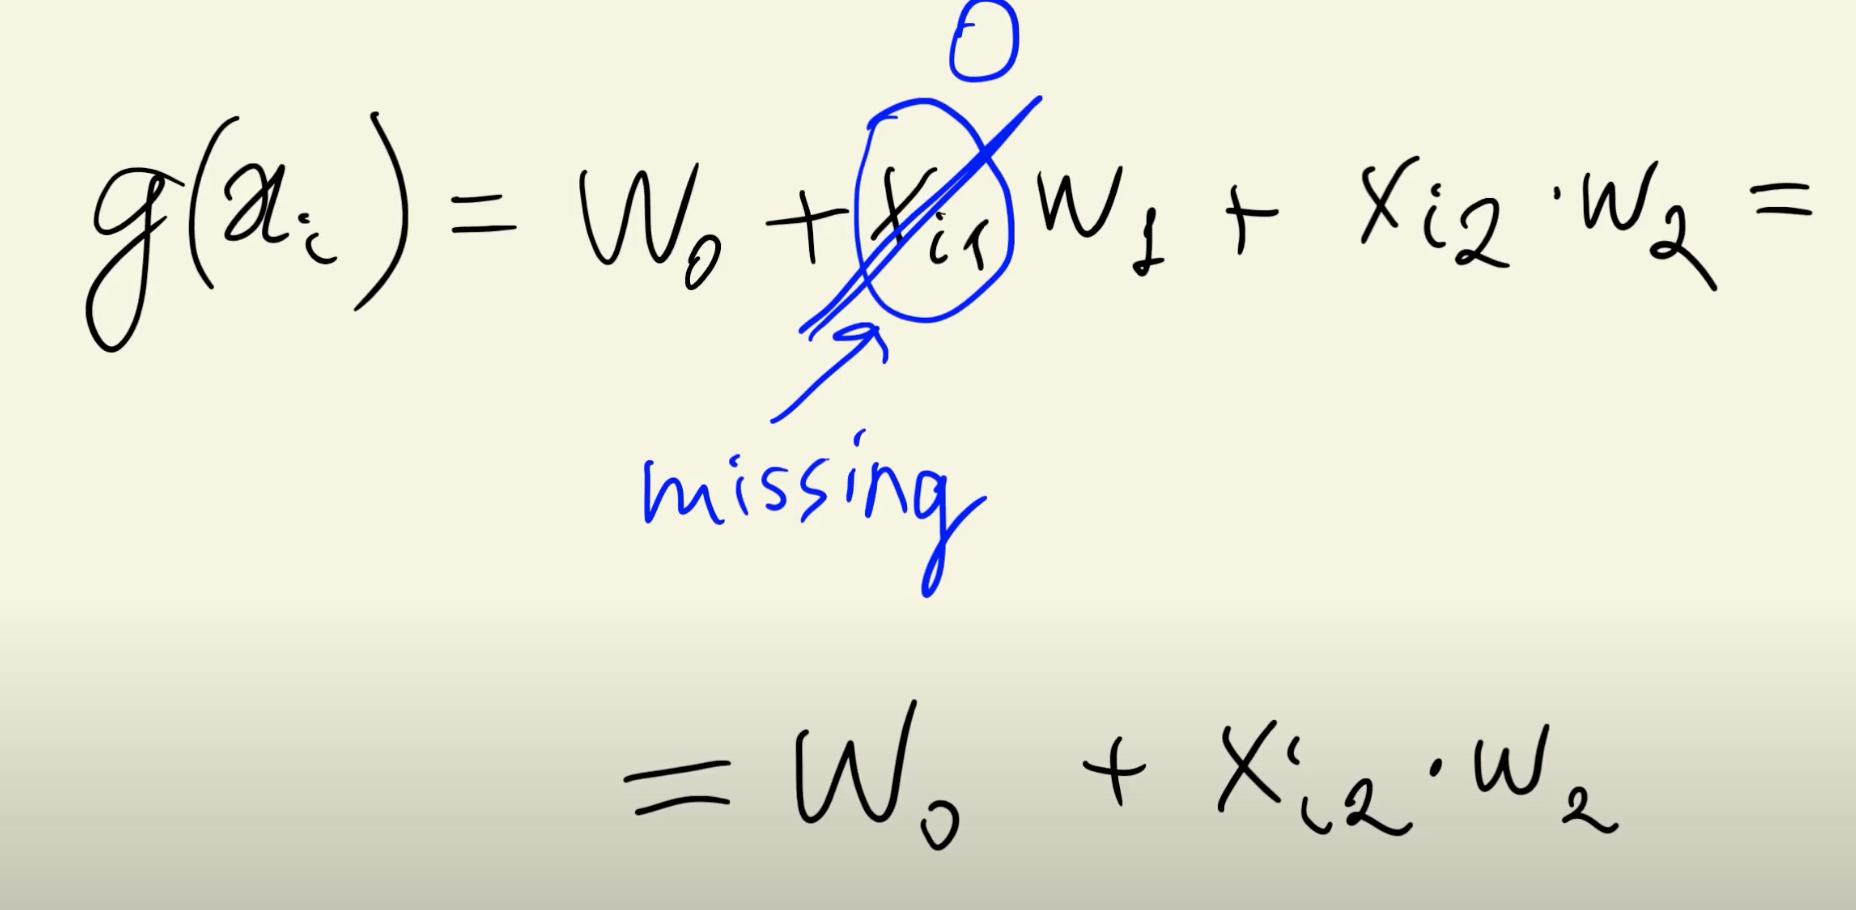 0
g(xᵢ) = W₀ + xᵢ₁ W₁ + xᵢ₂ · W₂ =
missing
= W₀ + xᵢ₂ · W₂